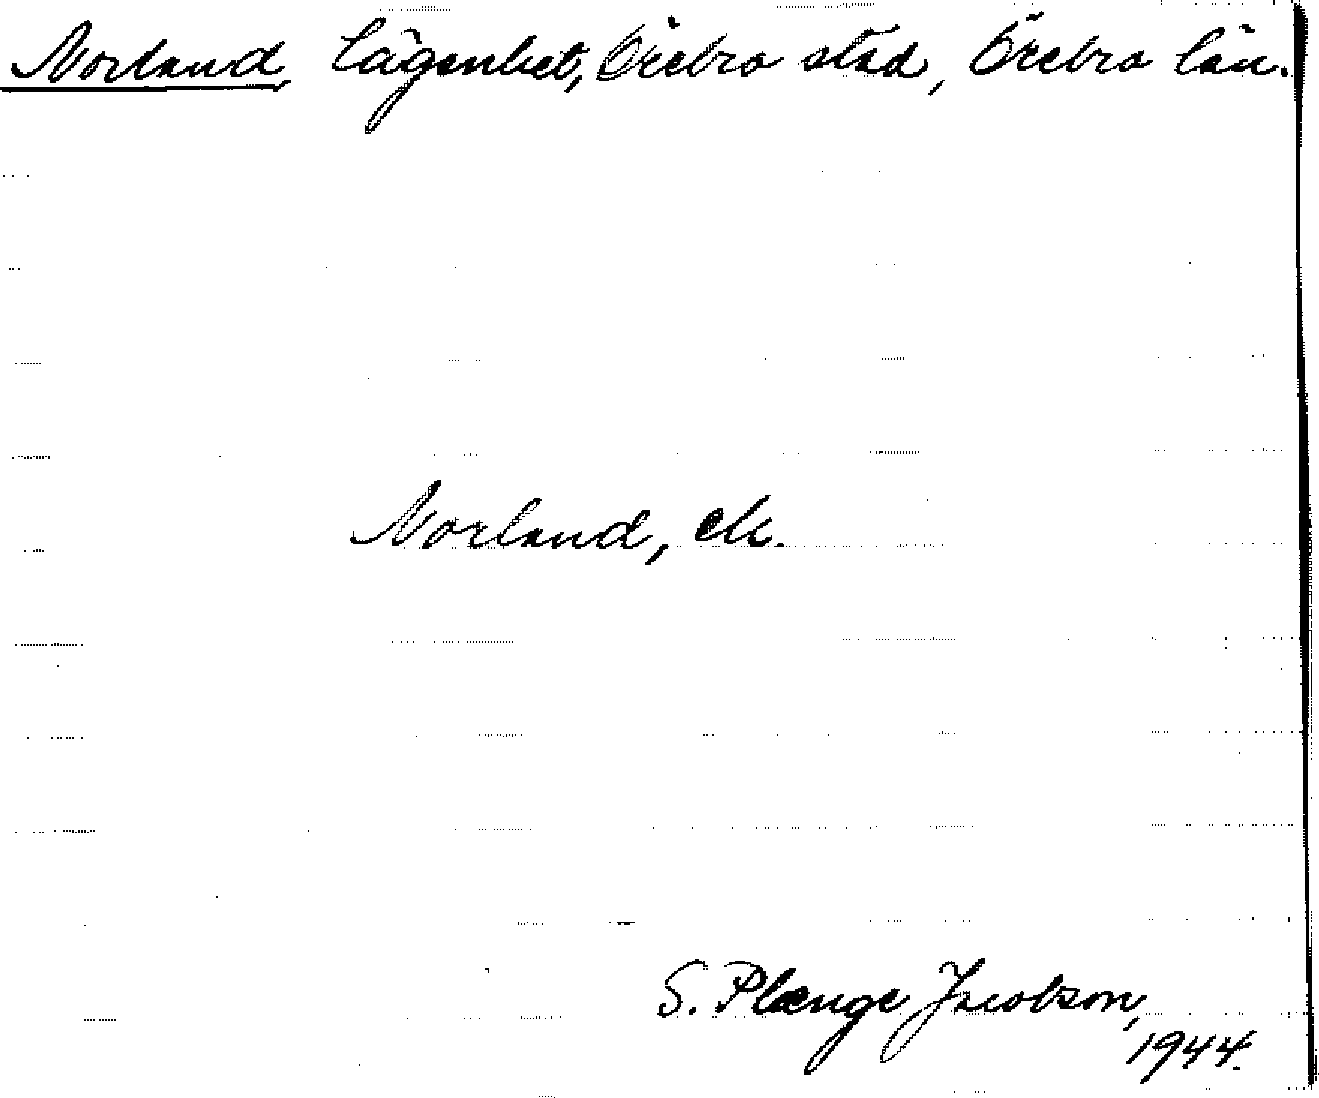 Norland, lägenhet, Örebro stad, Örebro län.
Norland, ek.
S. Plænge Jacobson,
1944.